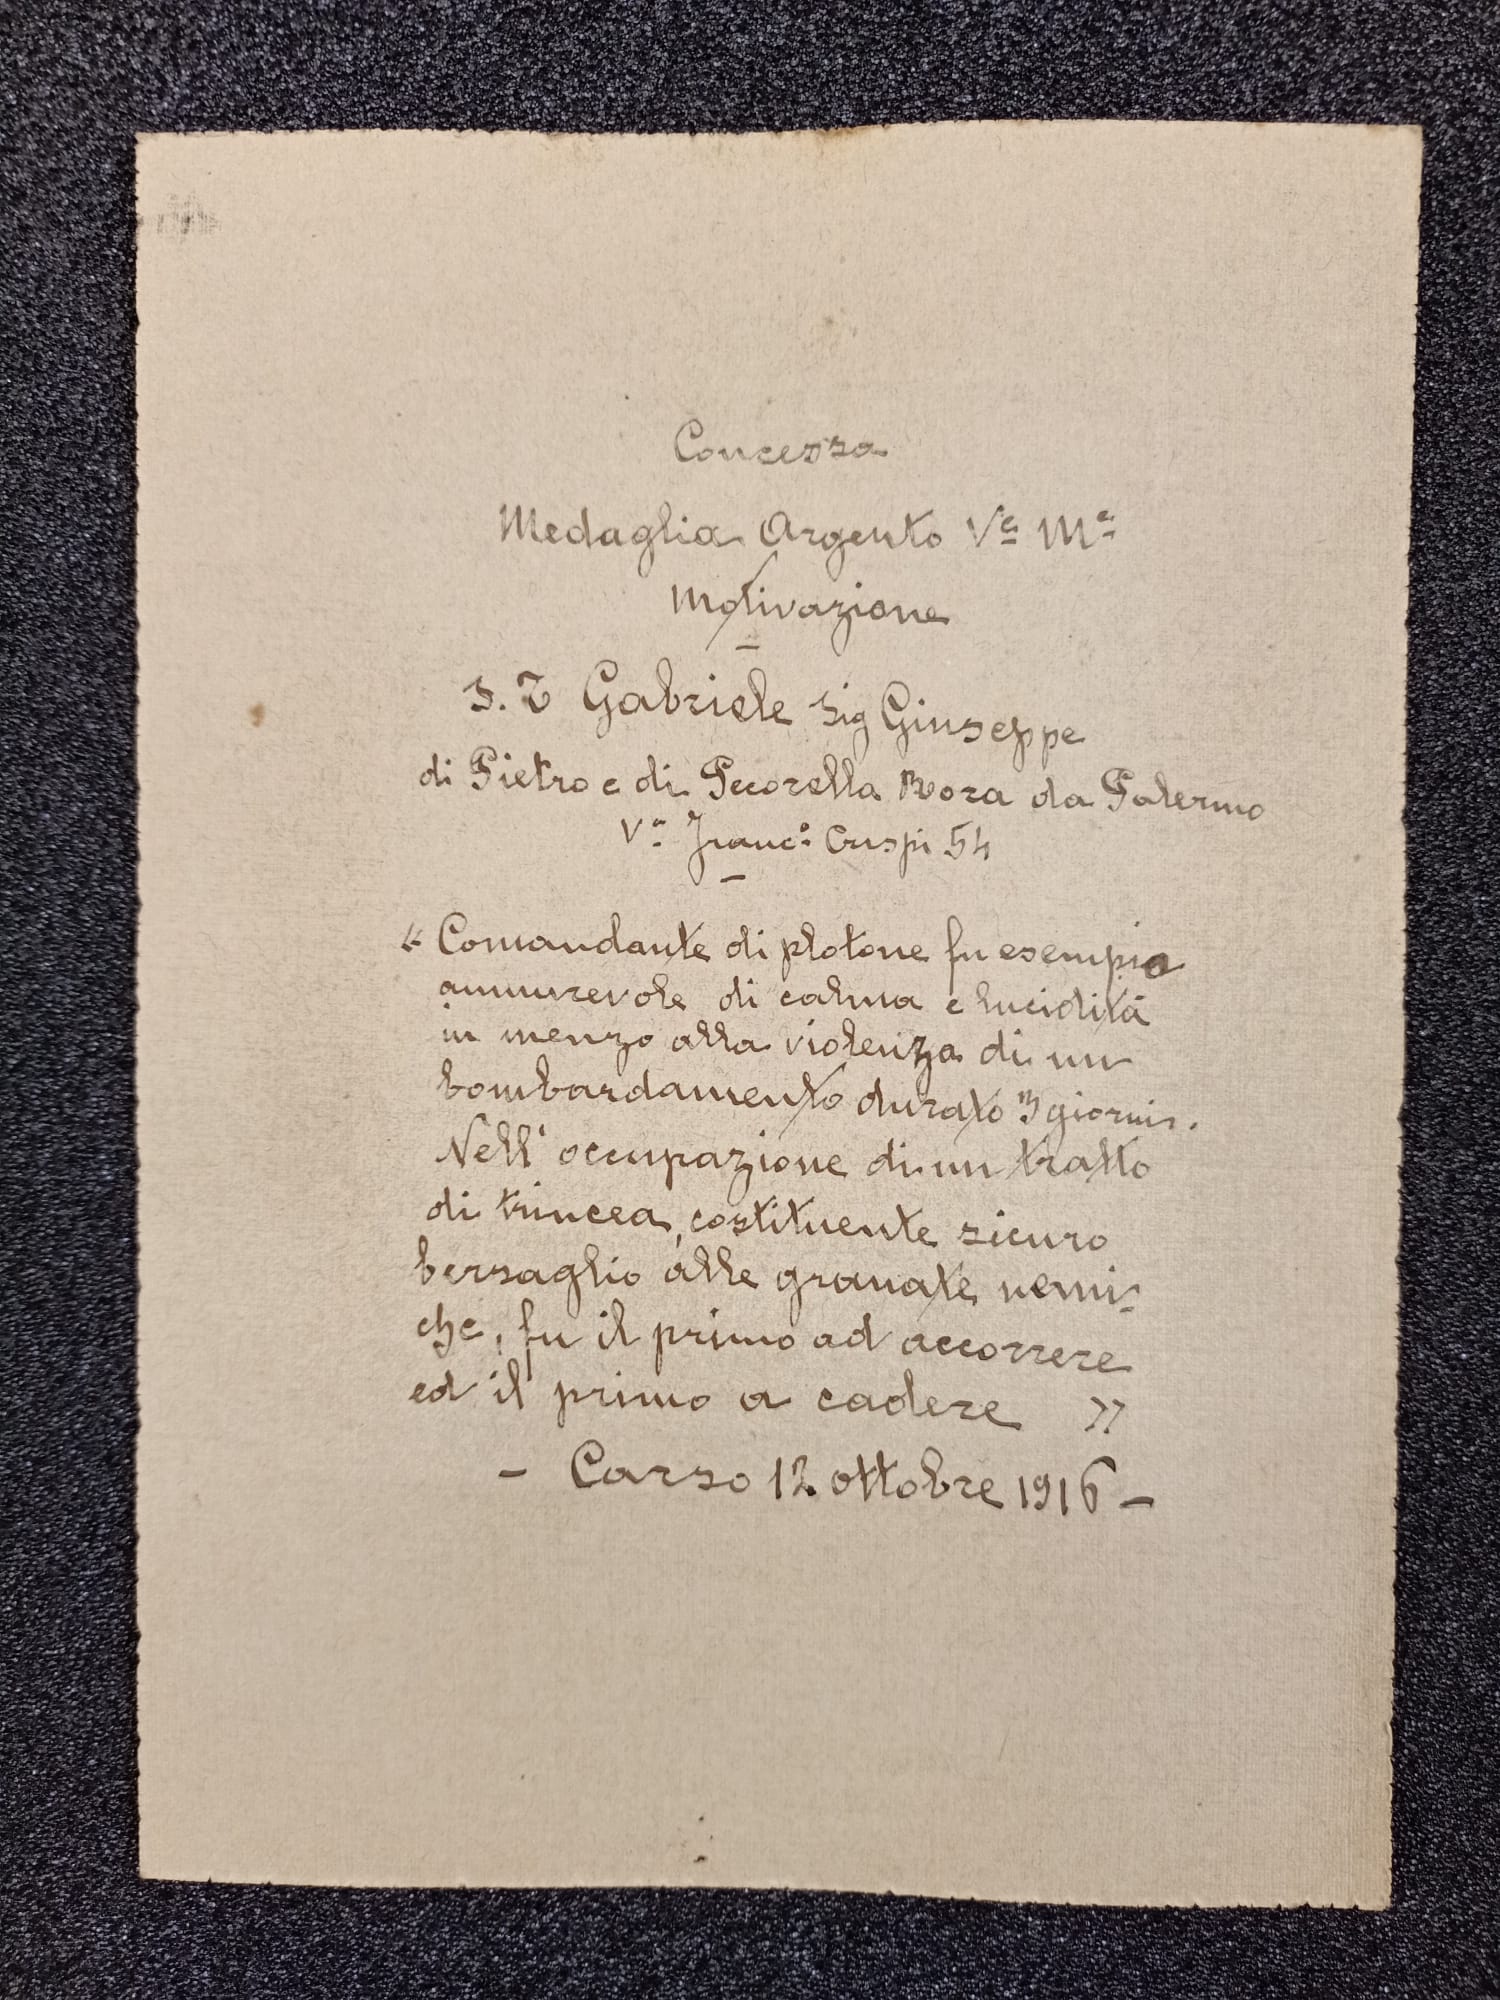 Concessa
Medaglia Argento Ve Me
Motivazione
S. T Gabriele Sig Giuseppe
di Pietro e di Pecorella Rosa da Palermo
Va Franco Crispi 54
"Comandante di plotone fu esempio
ammirevole di calma e lucidità
in menzo alla violenza di un
bombardamento durato 3 giorni.
Nell'occupazione di un tratto
di trincea, costituente sicuro
bersaglio alle granate nemi-
che, fu il primo ad accorrere
ed il primo a cadere "
- Carso 12 ottobre 1916 -